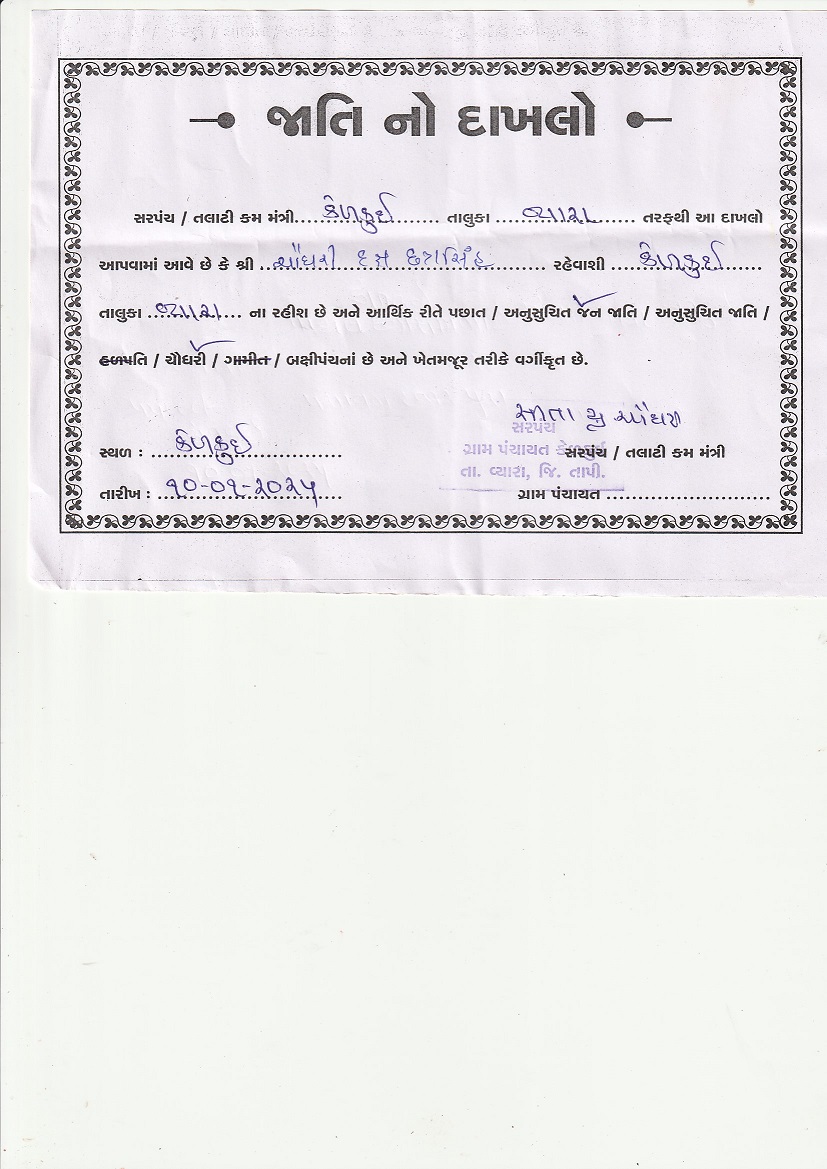 જાતિ નો દાખલો
સરપંચ / તલાટી કમ મંત્રી....કેળકુઈ....... તાલુકા ....વ્યારા...... તરફથી આ દાખલો
આપવામાં આવે છે કે શ્રી ..ચૌધરી દત્ત છત્રસિંહ......... રહેવાશી ....કેળકુઈ......
તાલુકા ..વ્યારા... ના રહીશ છે અને આર્થિક રીતે પછાત / અનુસુચિત જન જાતિ / અનુસુચિત જાતિ /
હળપતિ / ચૌધરી / ગામીત / બક્ષીપંચનાં છે અને ખેતમજૂર તરીકે વર્ગીકૃત છે.
ચૌધરી
સરપંચ
સ્થળ : ...કેળકુઈ............. ગ્રામ પંચાયત કેળકુઈ સરપંચ / તલાટી કમ મંત્રી
તા. વ્યારા, જિ. તાપી.
તારીખ : ૧૦-૦૧-૨૦૨૫.... ગ્રામ પંચાયત ..........................